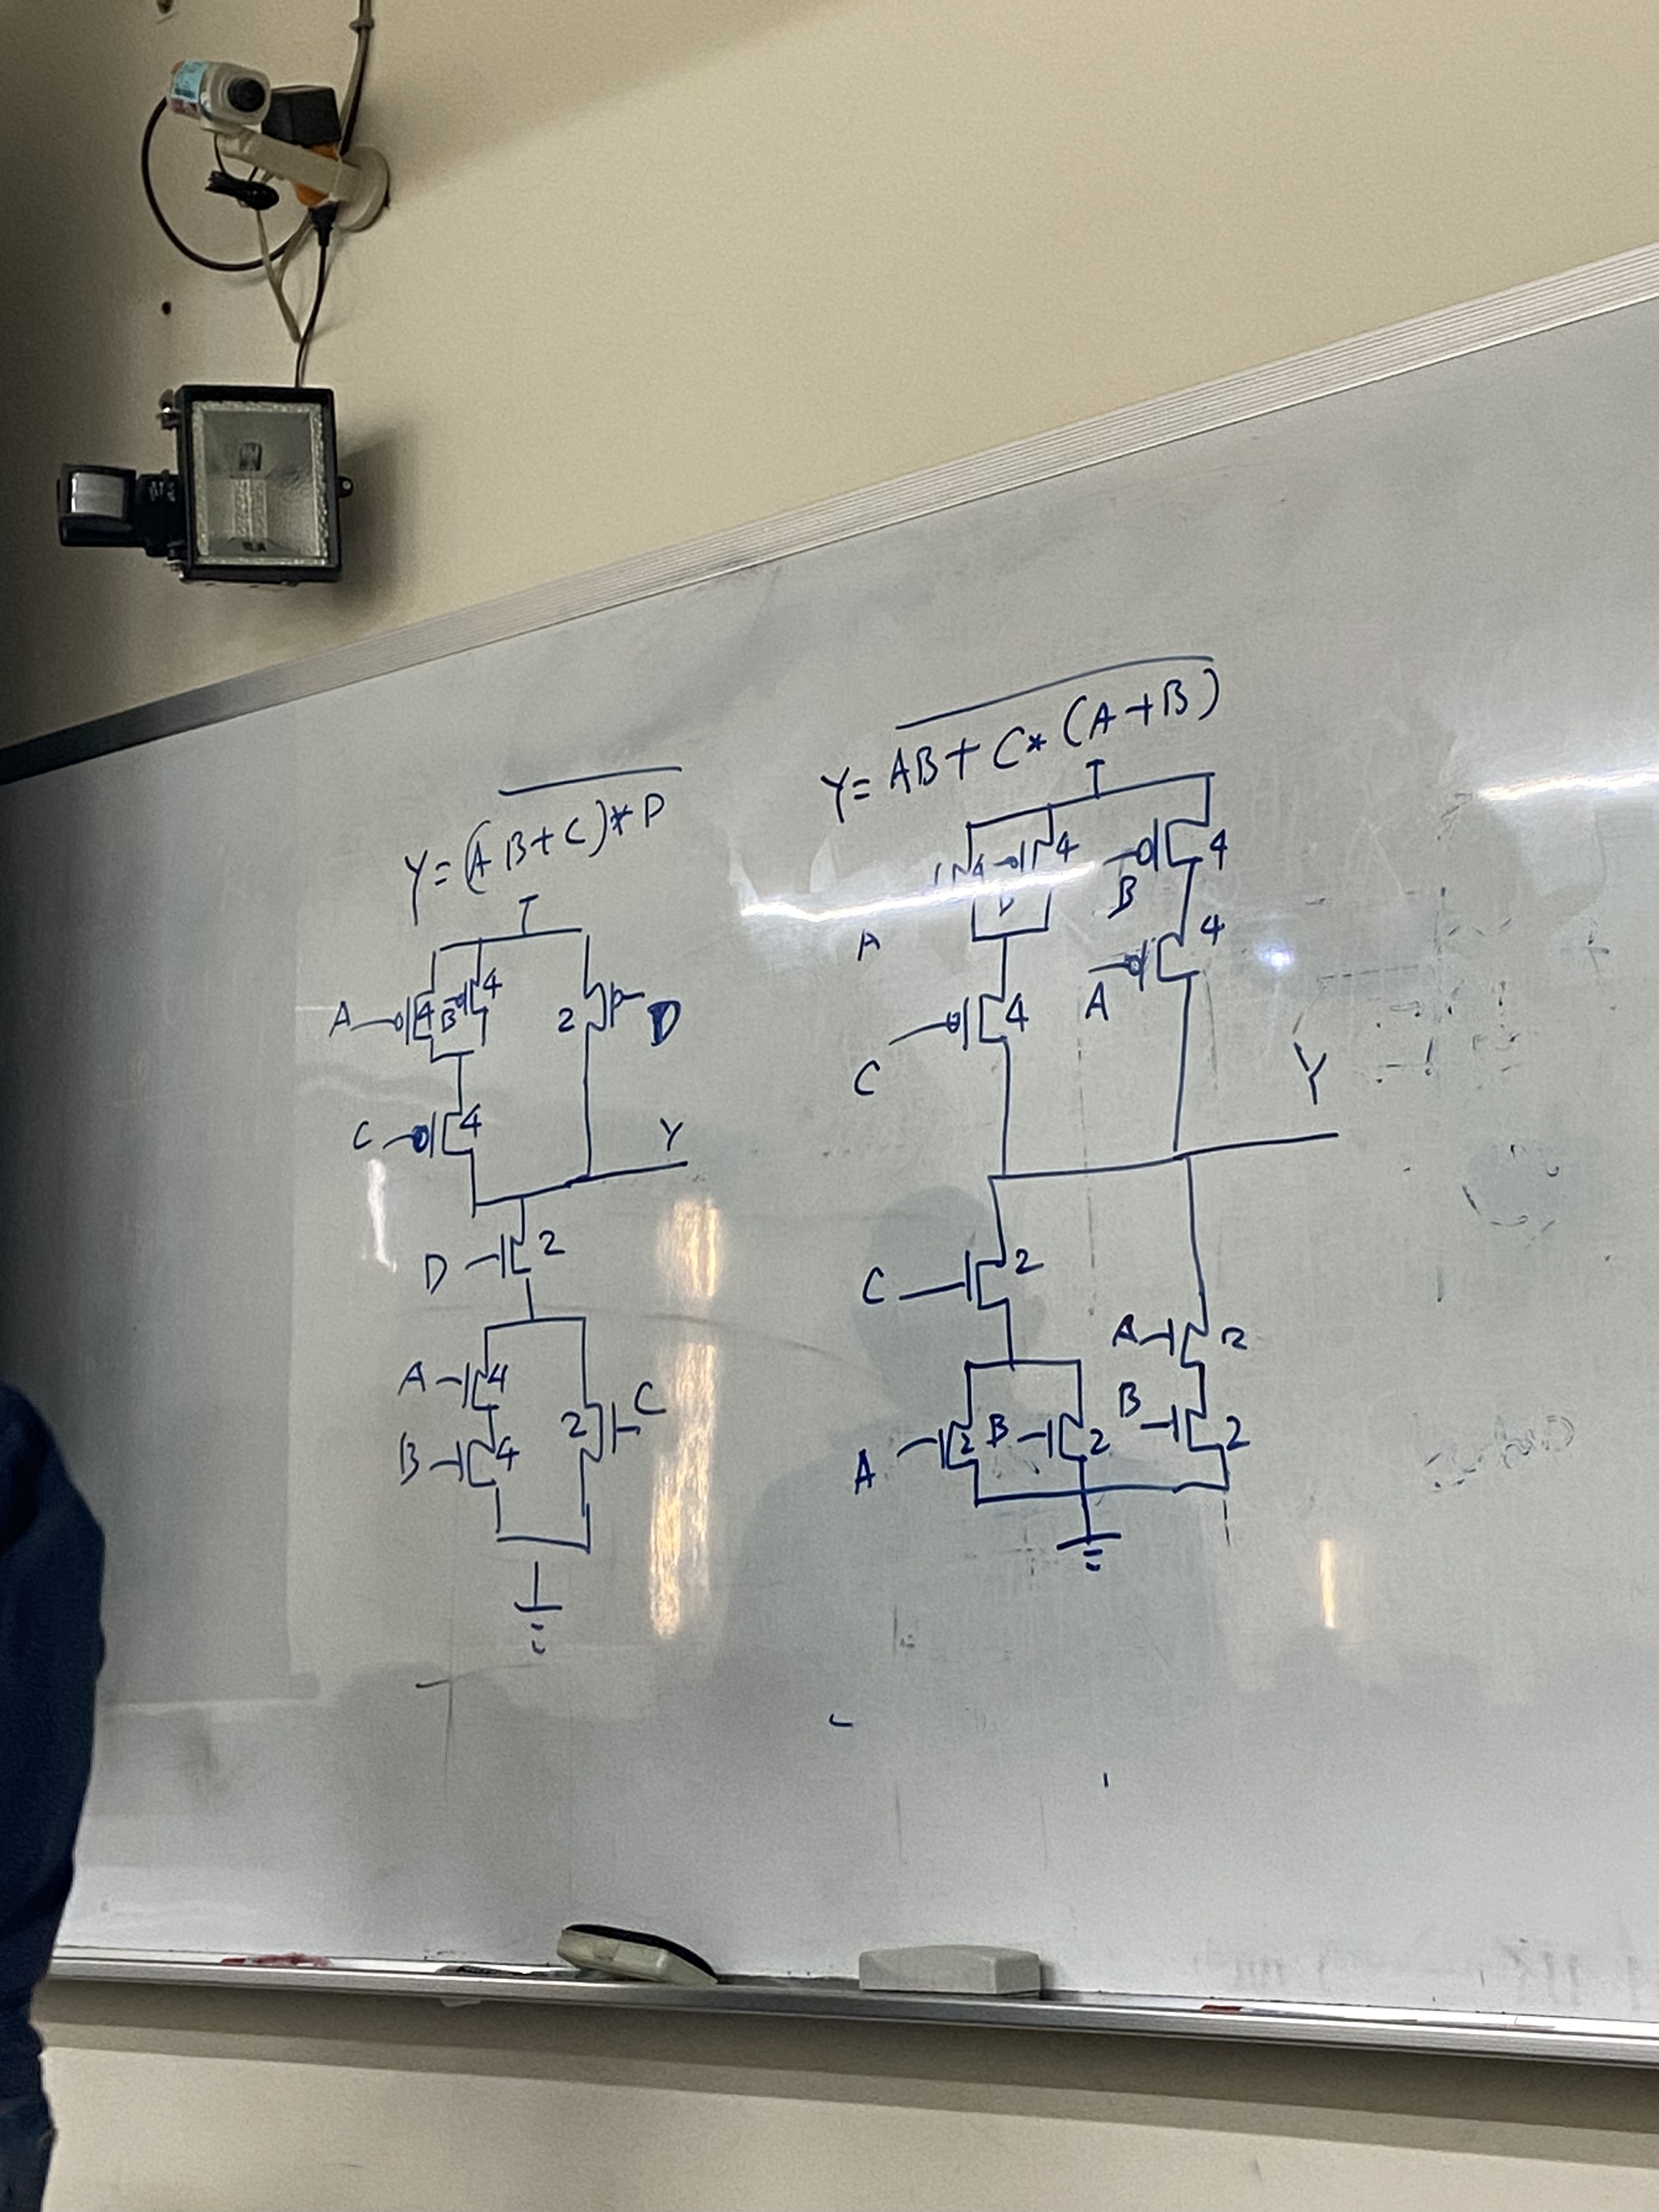 Y = (AB+C)*D
A
4
B
4
2
D
C
4
Y
D
2
A
4
B
4
2
C
Y = AB + C*(A+B)
4
4
B
4
A
A
4
C
4
Y
C
2
A
2
B
2
A
2
B
2